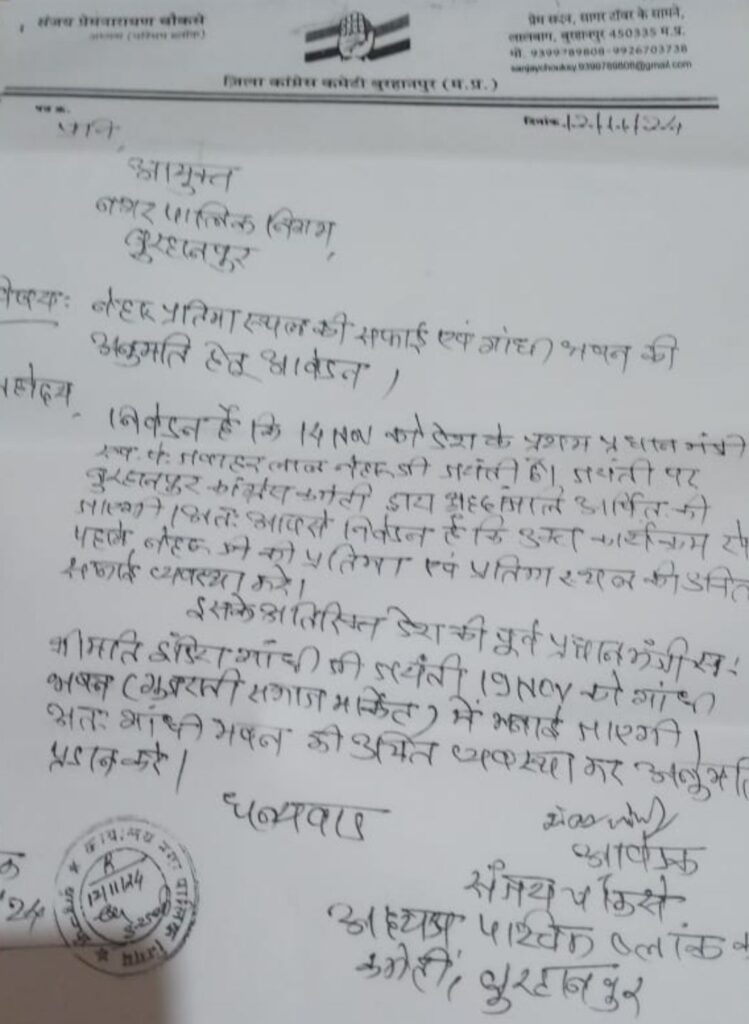 संजय प्रेमनारायण चौकसे
अध्यक्ष (पश्चिम ब्लॉक)
प्रेम सदन, सागर टॉवर के सामने,
लालबाग, बुरहानपुर 450335 म.प्र.
मो. 9399789808-9926703738
sanjaychouksy.9399789808@gmail.com
जिला कांग्रेस कमेटी बुरहानपुर (म.प्र.)
पत्र क्र.
दिनांक 12/11/24
प्रति,
आयुक्त
नगर पालिक निगम,
बुरहानपुर
विषय: नेहरू प्रतिमा स्थल की सफाई एवं गांधी भवन की
अनुमति हेतु आवेदन।
महोदय,
निवेदन है कि 14 NOV को देश के प्रथम प्रधान मंत्री
स्व. पं. जवाहर लाल नेहरू जी जयंती है। जयंती पर
बुरहानपुर कांग्रेस कमेटी द्वारा श्रद्धांजलि अर्पित की
जाएगी। अतः आपसे निवेदन है कि उक्त कार्यक्रम से
पहले नेहरू जी की प्रतिमा एवं प्रतिमा स्थल की उचित
सफाई व्यवस्था करे।
इसके अतिरिक्त देश की पूर्व प्रधान मंत्री स्व:
श्रीमति इंदिरा गांधी जी जयंती 19 NOV को गांधी
भवन (गुजराती समाज मार्केट) में मनाई जाएगी।
अतः गांधी भवन की उचित व्यवस्था कर अनुमति
प्रदान करे।
धन्यवाद
आवेदक
संजय चौकसे
अध्यक्ष पश्चिम ब्लॉक क
कमेटी, बुरहानपुर
12/11/24